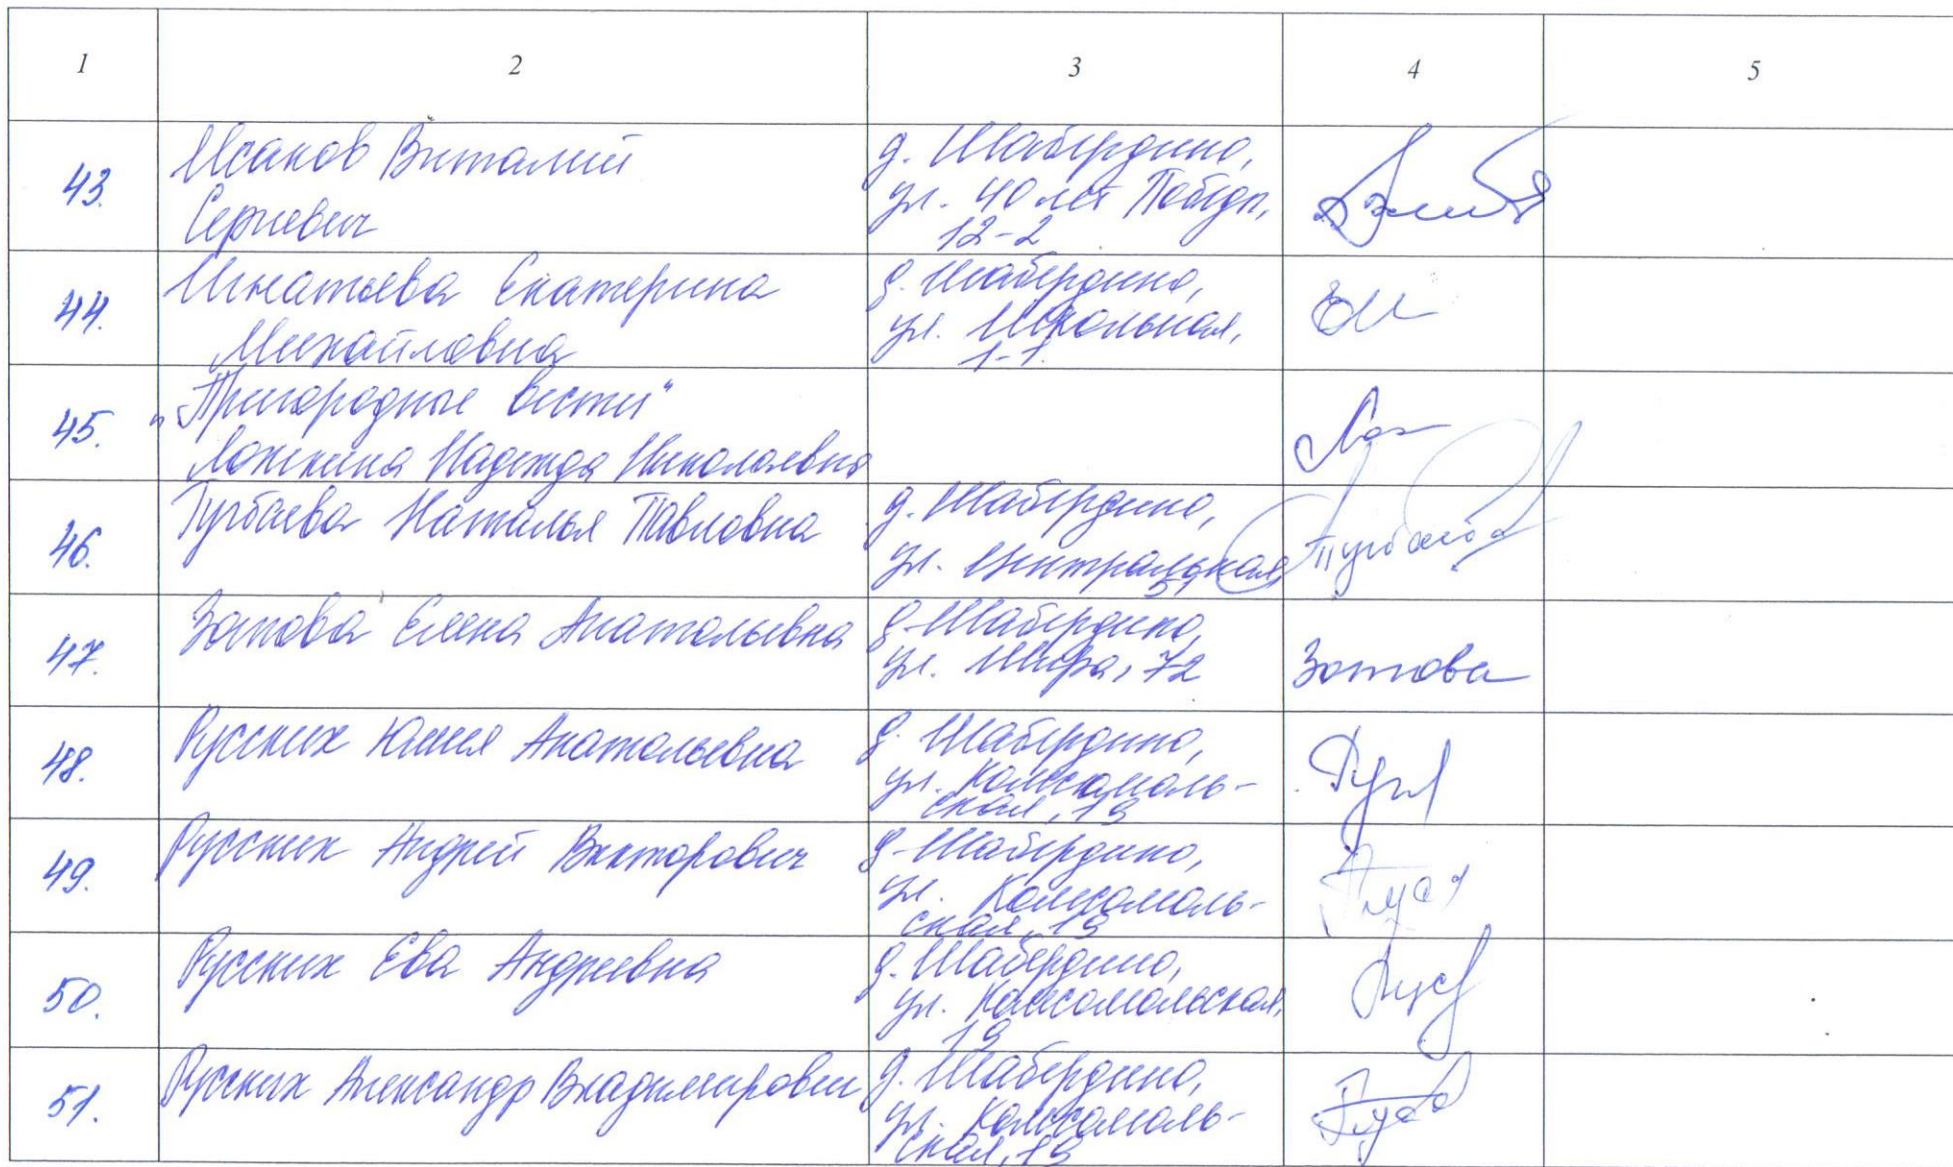 1 2 3 4 5
43. Исаков Виталий
Сергеевич
д. Шабердино,
ул. 40 лет Победы,
12-2
44. Игнатьева Екатерина
Михайловна
д. Шабердино,
ул. Школьная,
1-1.
45. „Пригородные вести"
Ложкина Надежда Николаевна
46. Наталья Павловна
д. Шабердино,
ул. Центральная,
51
47. Зотова Елена Анатольевна
д. Шабердино,
ул. Мира, 72
Зотова
48. Русских Юлия Анатольевна
д. Шабердино,
ул. Комсомоль-
ская, 19
49. Русских Андрей Викторович
д. Шабердино,
ул. Комсомоль-
ская, 19
50. Русских Ева Андреевна
д. Шабердино,
ул. Комсомольская,
19
51. Русских Александр Владимирович
д. Шабердино,
ул. Комсомоль-
ская, 19